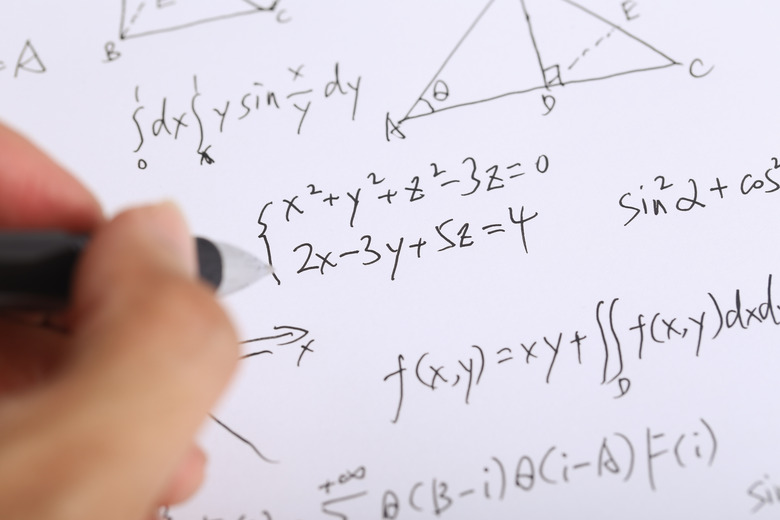 = A
B
C
E
A θ
D
C
∫₀¹ dx ∫ₓ¹ y sin x/y dy
{ x² + y² + z² - 3z = 0
2x - 3y + 5z = 4
sin² α + cos²
x
f(x,y) = xy + ∬_D f(x,y) dxd
+∞
∑ θ(B-i) θ(i-A) F(i)